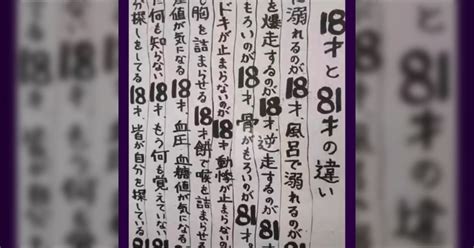 18才と81才の違い
に溺れるのが18才、風呂で溺れるのが81
を爆走するのが18才、逆走するのが81
もろいのが18才、骨がもろいのが81
ドキが止まらないのが18才、動悸が止まらないの
し胸を詰まらせる18才、餅で喉を詰まらせる
差値が気になる18才、血圧、血糖値が気になる
だ何も知らない18才、もう何も覚えていない
分探しをしてる18才、皆が自分を探している81